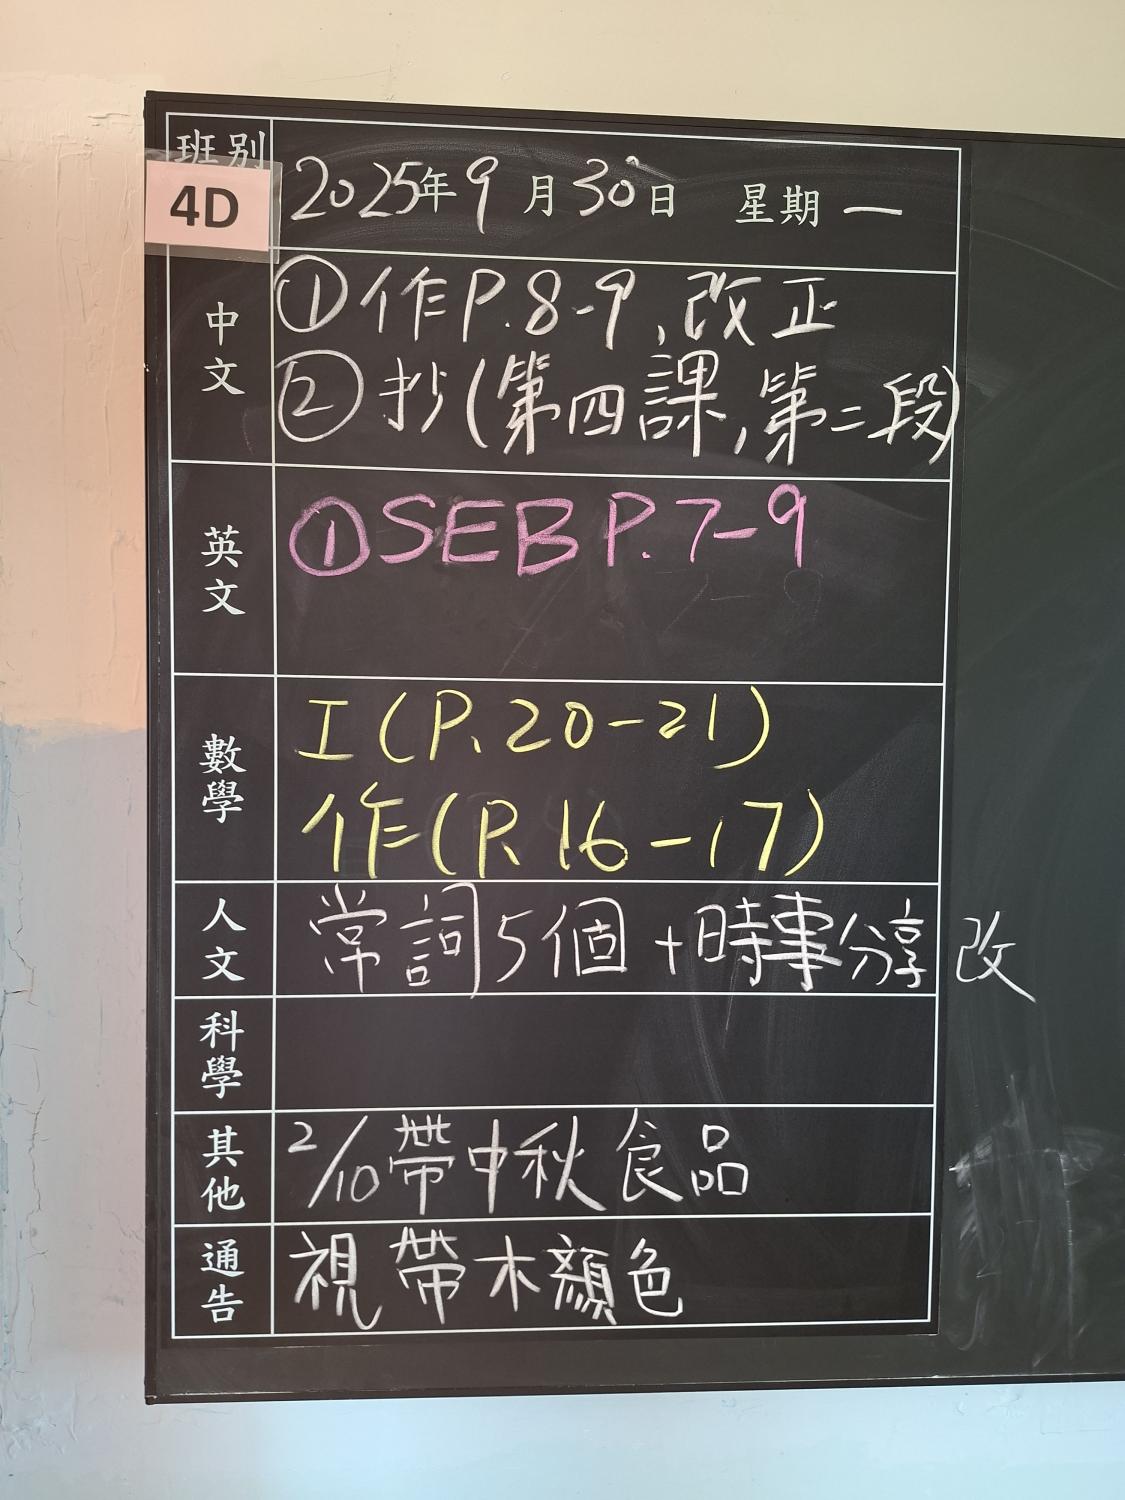 班別
4D
2025年9月30日 星期一
中文
①作P.8-9,改正
②抄(第四課,第二段)
英文
①SEB P.7-9
數學
I(P.20-21)
作(P.16-17)
人文
常詞5個+時事分享 改
科學
其他
2/10帶中秋食品
通告
視 帶木顏色